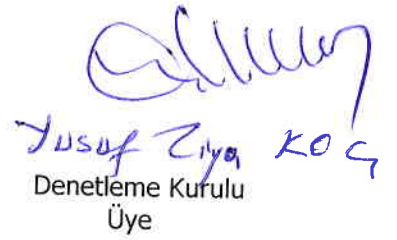 Yusuf Ziya KOÇ
Denetleme Kurulu
Üye